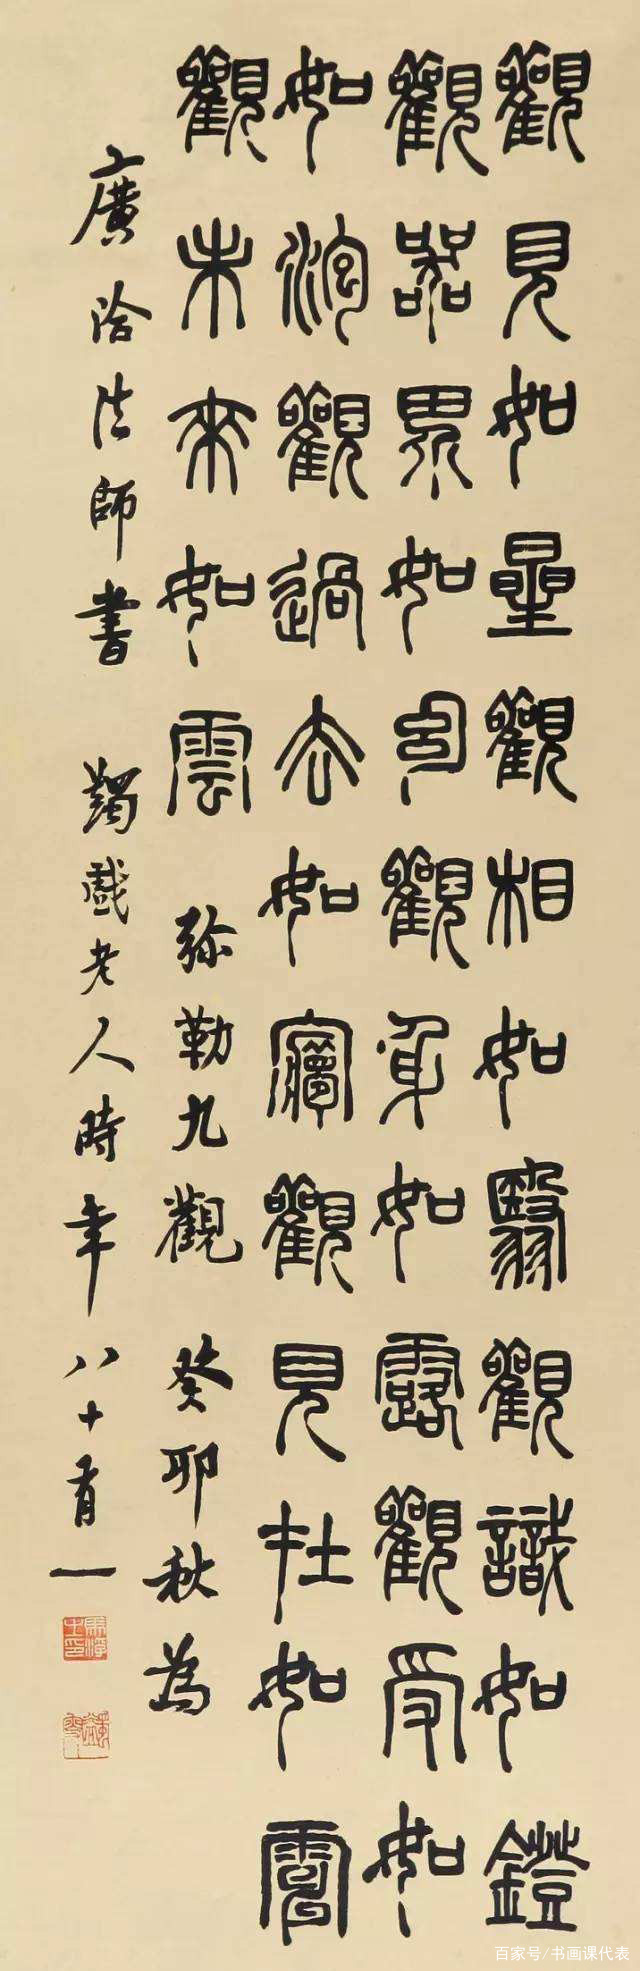 觀見如星觀相如翳觀識如鐙
觀器界如幻觀身如露觀受如
如泡觀過去如㝱觀見在如電
觀未來如雲 弥勒九觀 癸卯秋為
廣洽法師書 蠲戲老人時年八十有一
百家号/书画课代表